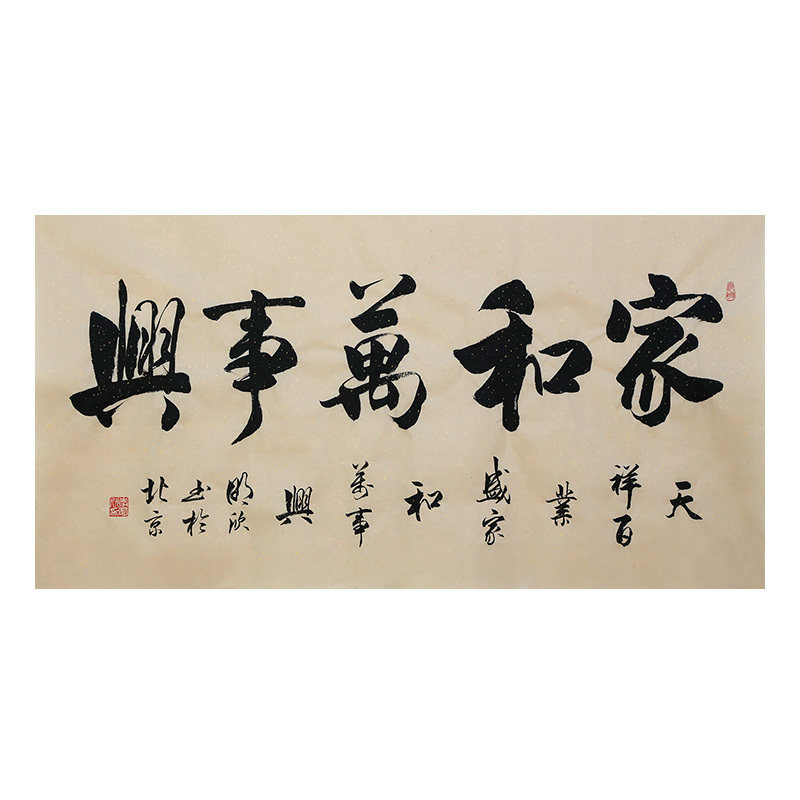 家和萬事興
天
祥百
業
盛家
和
萬事
興
明欣
书於
北京